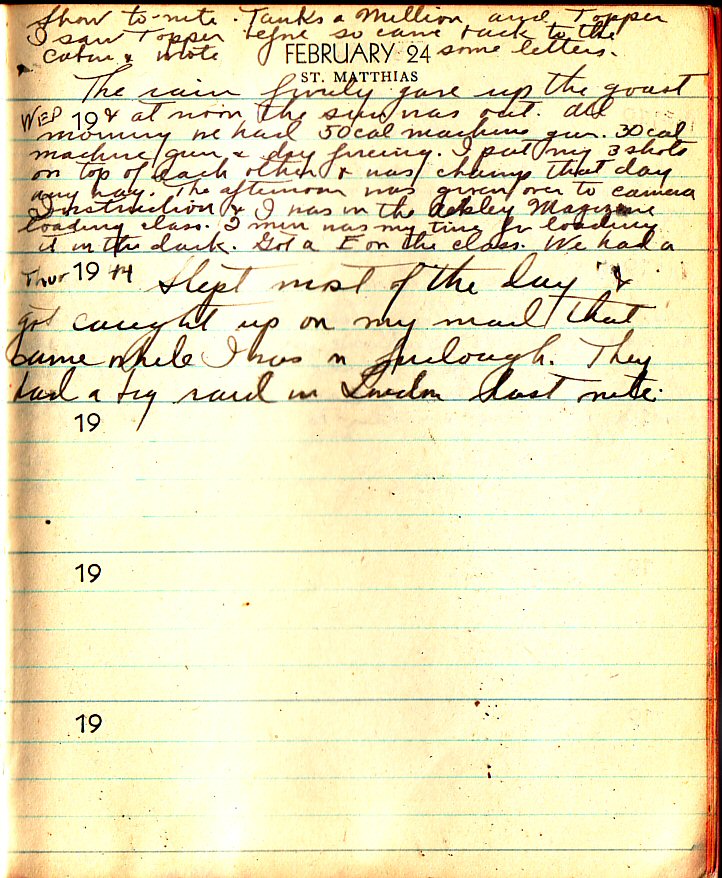 Show to-nite. Tanks a Million and Topper
I saw Topper before so came back to the
cabin & wrote some letters.
FEBRUARY 24
ST. MATTHIAS
The rain finely gave up the goast
WED 19 & at noon the sun was out. All
morning we had 50 cal machine gun. 30 cal
machine gun & dry fireing. I put my 3 shots
on top of each other & was champ that day
any way. The afternoon was given over to camera
Instruction & I was in the Magizine
loading class. 3 min was my time for loading
it in the dark. Got a E on the class. We had a
Thur 19 44 Slept most of the day &
got caught up on my mail that
came while I was on furlough. They
had a big raid in London last nite.
19
19
19